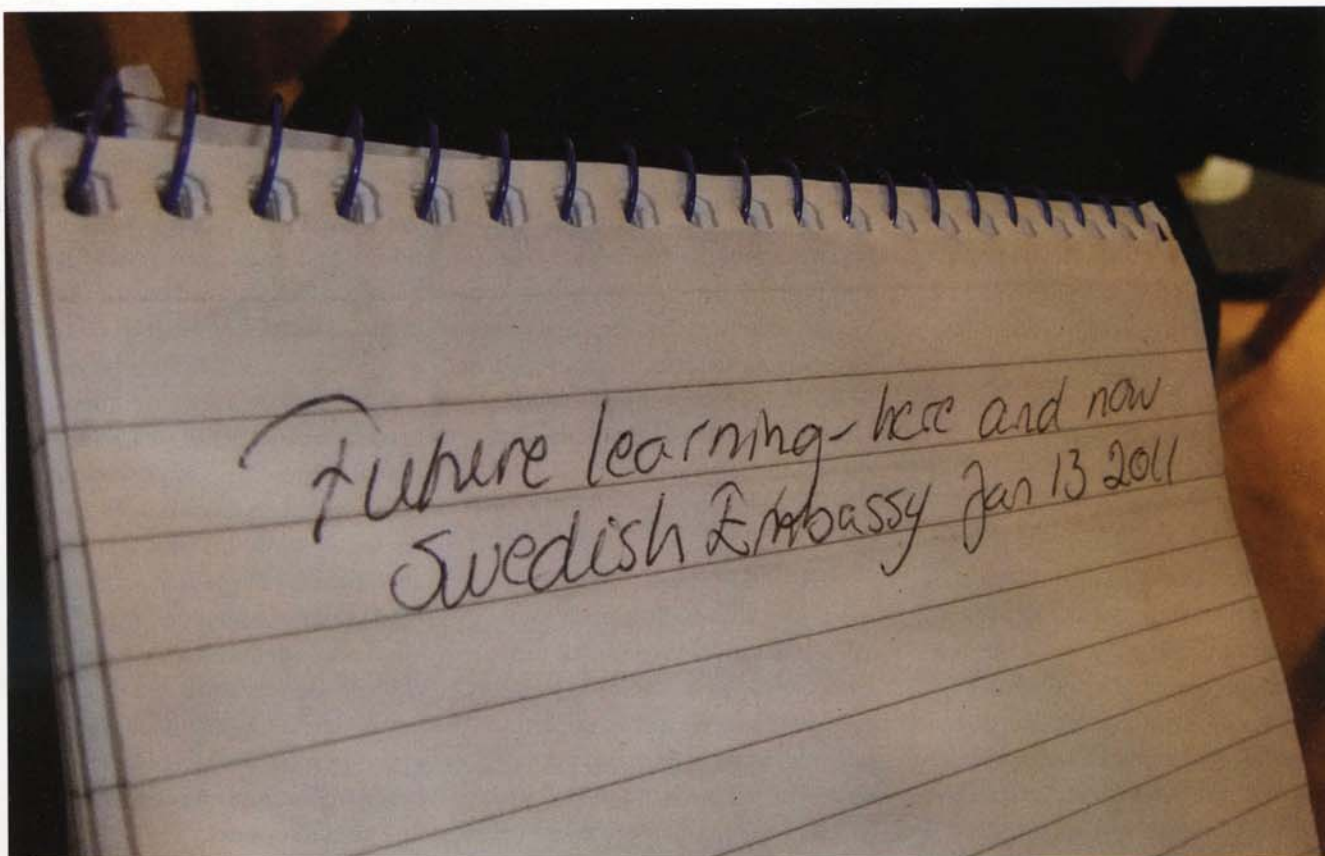 Future learning - here and now
Swedish Embassy Jan 13 2011